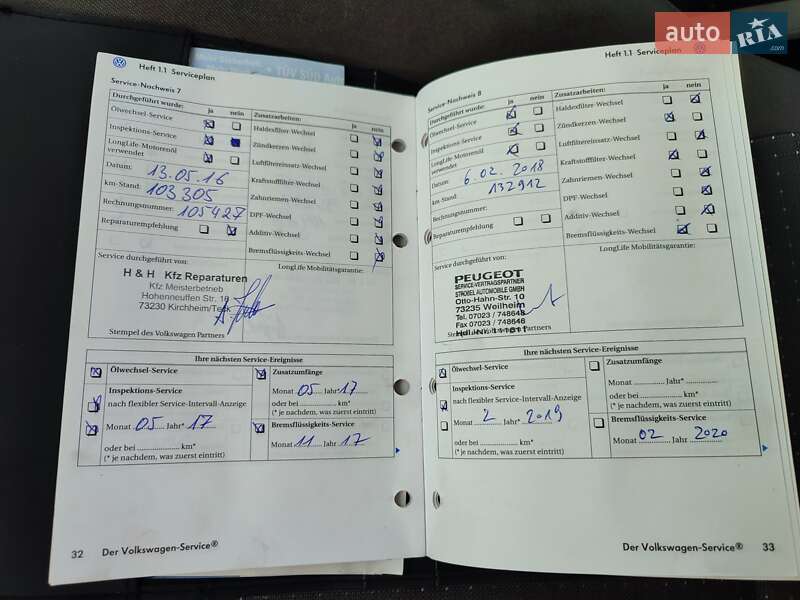 auto RIA .com
TÜV SÜD Auto
Heft 1.1 Serviceplan
Service-Nachweis 7
Durchgeführt wurde: ja nein
Ölwechsel-Service
Inspektions-Service
LongLife-Motorenöl
verwendet
Datum: 13.05.16
km-Stand: 103305
Rechnungsnummer: 105427
Reparaturempfehlung
Zusatzarbeiten: ja nein
Haldexfilter-Wechsel
Zündkerzen-Wechsel
Luftfiltereinsatz-Wechsel
Kraftstofffilter-Wechsel
Zahnriemen-Wechsel
DPF-Wechsel
Additiv-Wechsel
Bremsflüssigkeits-Wechsel
Service durchgeführt von:
LongLife Mobilitätsgarantie:
H & H Kfz Reparaturen
Kfz Meisterbetrieb
Hohenneuffen Str. 16
73230 Kirchheim/Teck
Stempel des Volkswagen Partners
Ihre nächsten Service-Ereignisse
Ölwechsel-Service
Inspektions-Service
nach flexibler Service-Intervall-Anzeige
Monat 05 Jahr* 17
oder bei km*
(* je nachdem, was zuerst eintritt)
Zusatzumfänge
Monat 05 Jahr* 17
oder bei km*
(* je nachdem, was zuerst eintritt)
Bremsflüssigkeits-Service
Monat 11 Jahr 17
32 Der Volkswagen-Service®
Heft 1.1 Serviceplan
Service-Nachweis 8
Durchgeführt wurde: ja nein
Ölwechsel-Service
Inspektions-Service
LongLife-Motorenöl
verwendet
Datum: 6.02.2018
km-Stand: 132912
Rechnungsnummer:
Reparaturempfehlung
Zusatzarbeiten: ja nein
Haldexfilter-Wechsel
Zündkerzen-Wechsel
Luftfiltereinsatz-Wechsel
Kraftstofffilter-Wechsel
Zahnriemen-Wechsel
DPF-Wechsel
Additiv-Wechsel
Bremsflüssigkeits-Wechsel
Service durchgeführt von:
LongLife Mobilitätsgarantie:
PEUGEOT
SERVICE-VERTRAGSPARTNER
STROBEL AUTOMOBILE GMBH
Otto-Hahn-Str. 10
73235 Weilheim
Tel. 07023 / 748645
Fax 07023 / 748646
Stempel des Volkswagen Partners
Ihre nächsten Service-Ereignisse
Ölwechsel-Service
Inspektions-Service
nach flexibler Service-Intervall-Anzeige
Monat 2 Jahr* 2019
oder bei km*
(* je nachdem, was zuerst eintritt)
Zusatzumfänge
Monat Jahr*
oder bei km*
(* je nachdem, was zuerst eintritt)
Bremsflüssigkeits-Service
Monat 02 Jahr 2020
Der Volkswagen-Service® 33